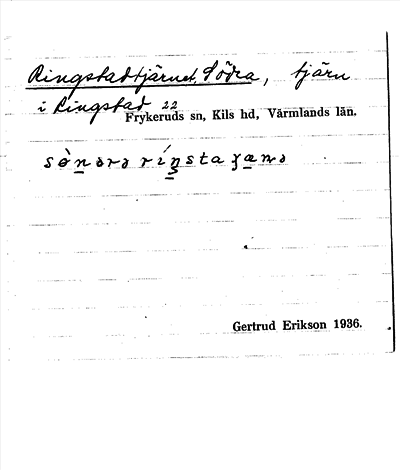 Ringstadtjärnet, Södra, tjärn
i Ringstad 22
Frykeruds sn, Kils hd, Värmlands län.
Gertrud Erikson 1936.